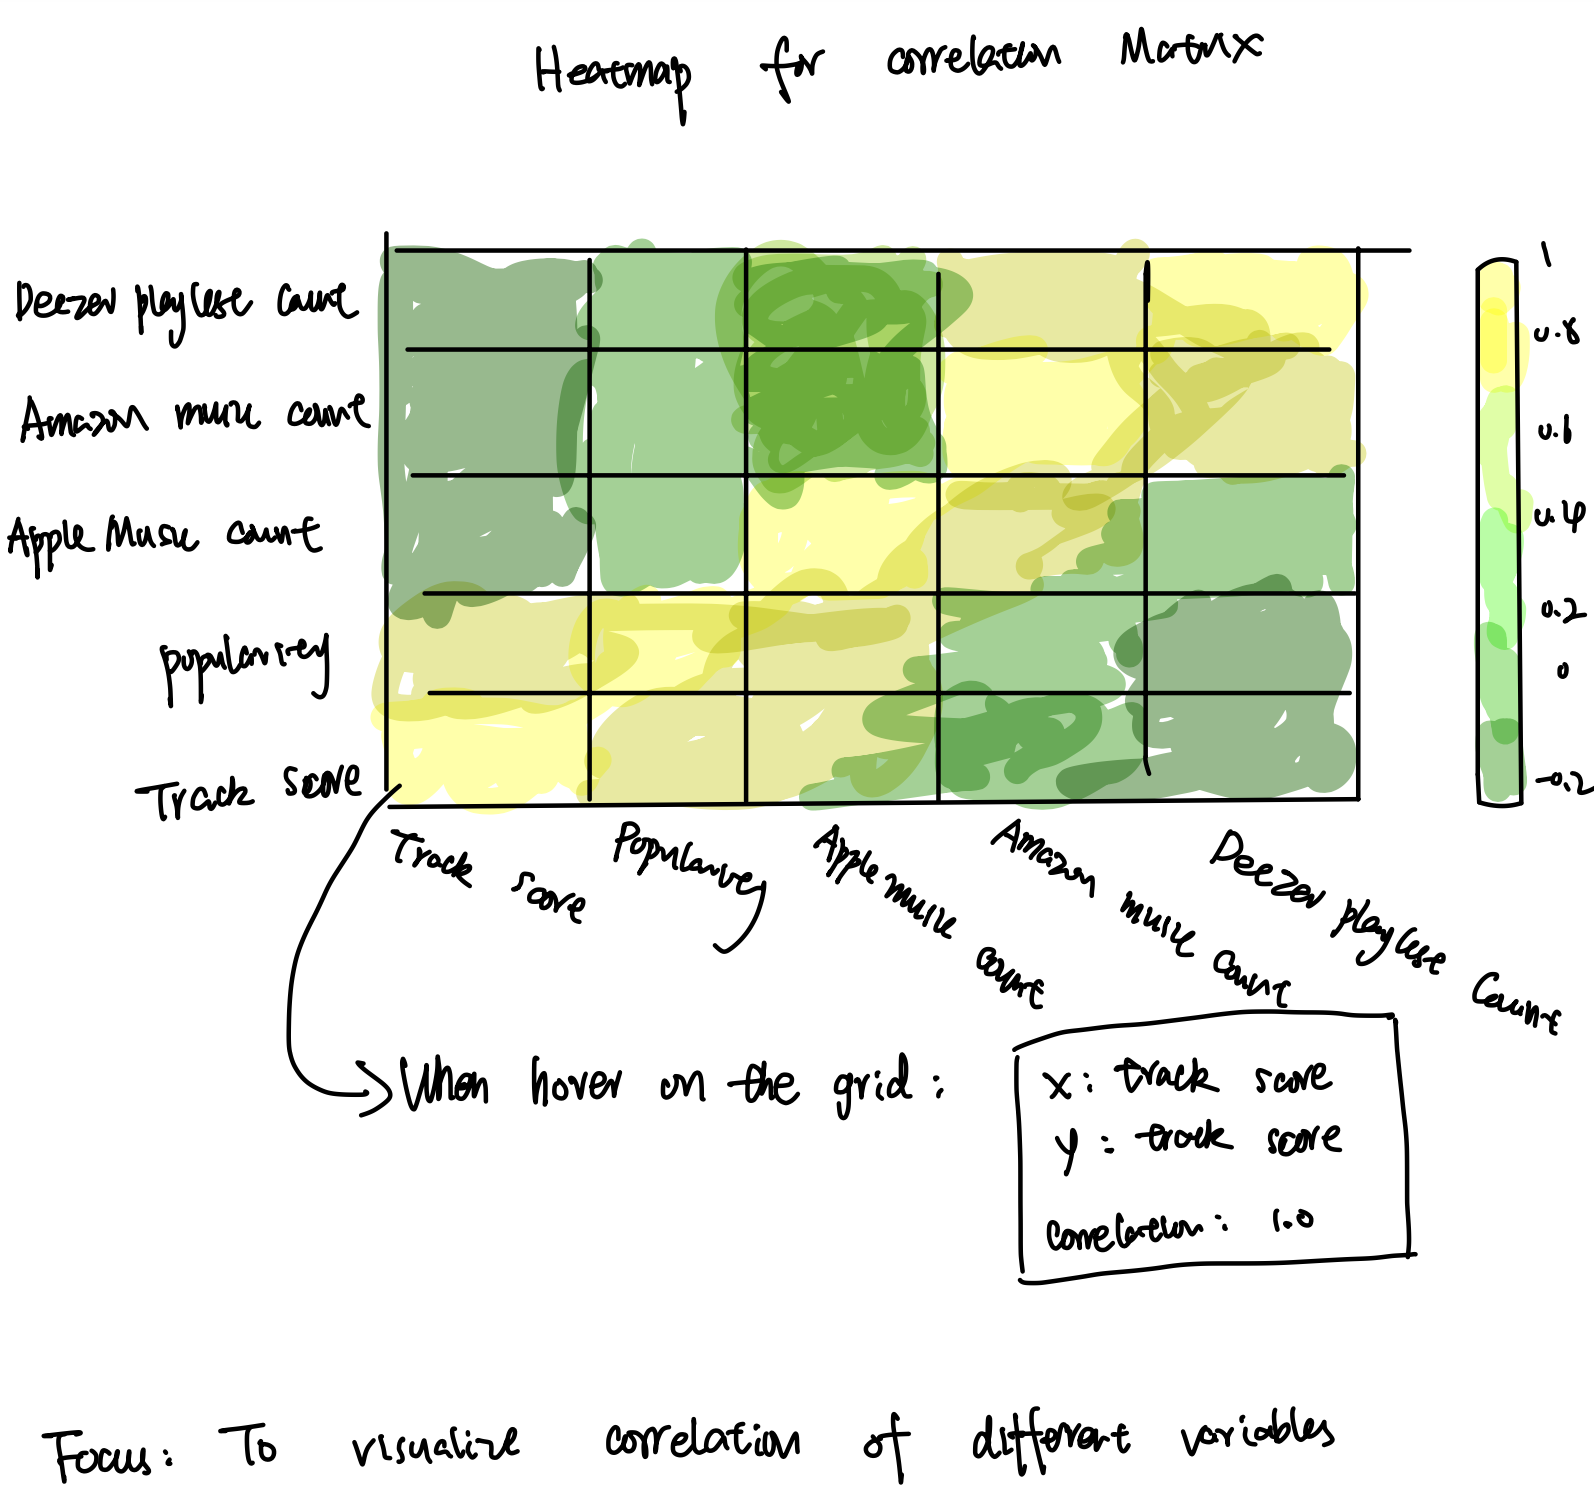 Heatmap for correlation Matrix
1
Deezer playlist count
0.8
Amazon music count
0.6
Apple Music count
0.4
0.2
popularity
0
Track score
-0.2
Track score
Popularity
Apple music count
Amazon music count
Deezer playlist count
When hover on the grid :
x : track score
y : track score
correlation : 1.0
Focus : To visualize correlation of different variables